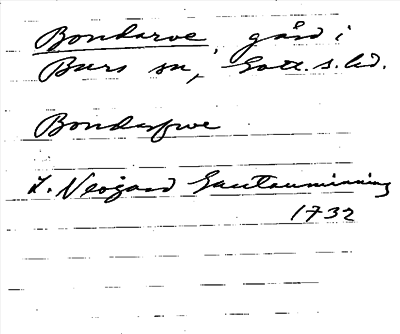 Bondarve, gård i
Burs sn, Gotl. s. hd.
Bondarfwe
L. Neogard Gautauminning
1732